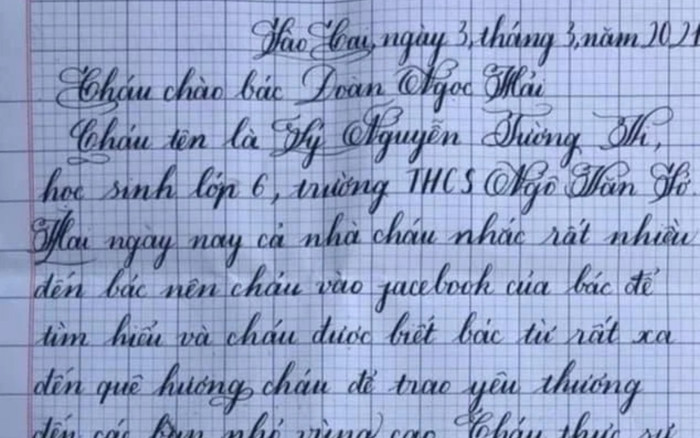 Lào Cai, ngày 3, tháng 3, năm 2021
Cháu chào bác Đoàn Ngọc Hải
Cháu tên là Lý Nguyễn Tường Vi,
học sinh lớp 6, trường THCS Ngô Văn Sở
Hai ngày nay cả nhà cháu nhắc rất nhiều
đến bác nên cháu vào facebook của bác để
tìm hiểu và cháu được biết bác từ rất xa
đến quê hương cháu để trao yêu thương
đến các bạn nhỏ vùng cao. Cháu thực sự